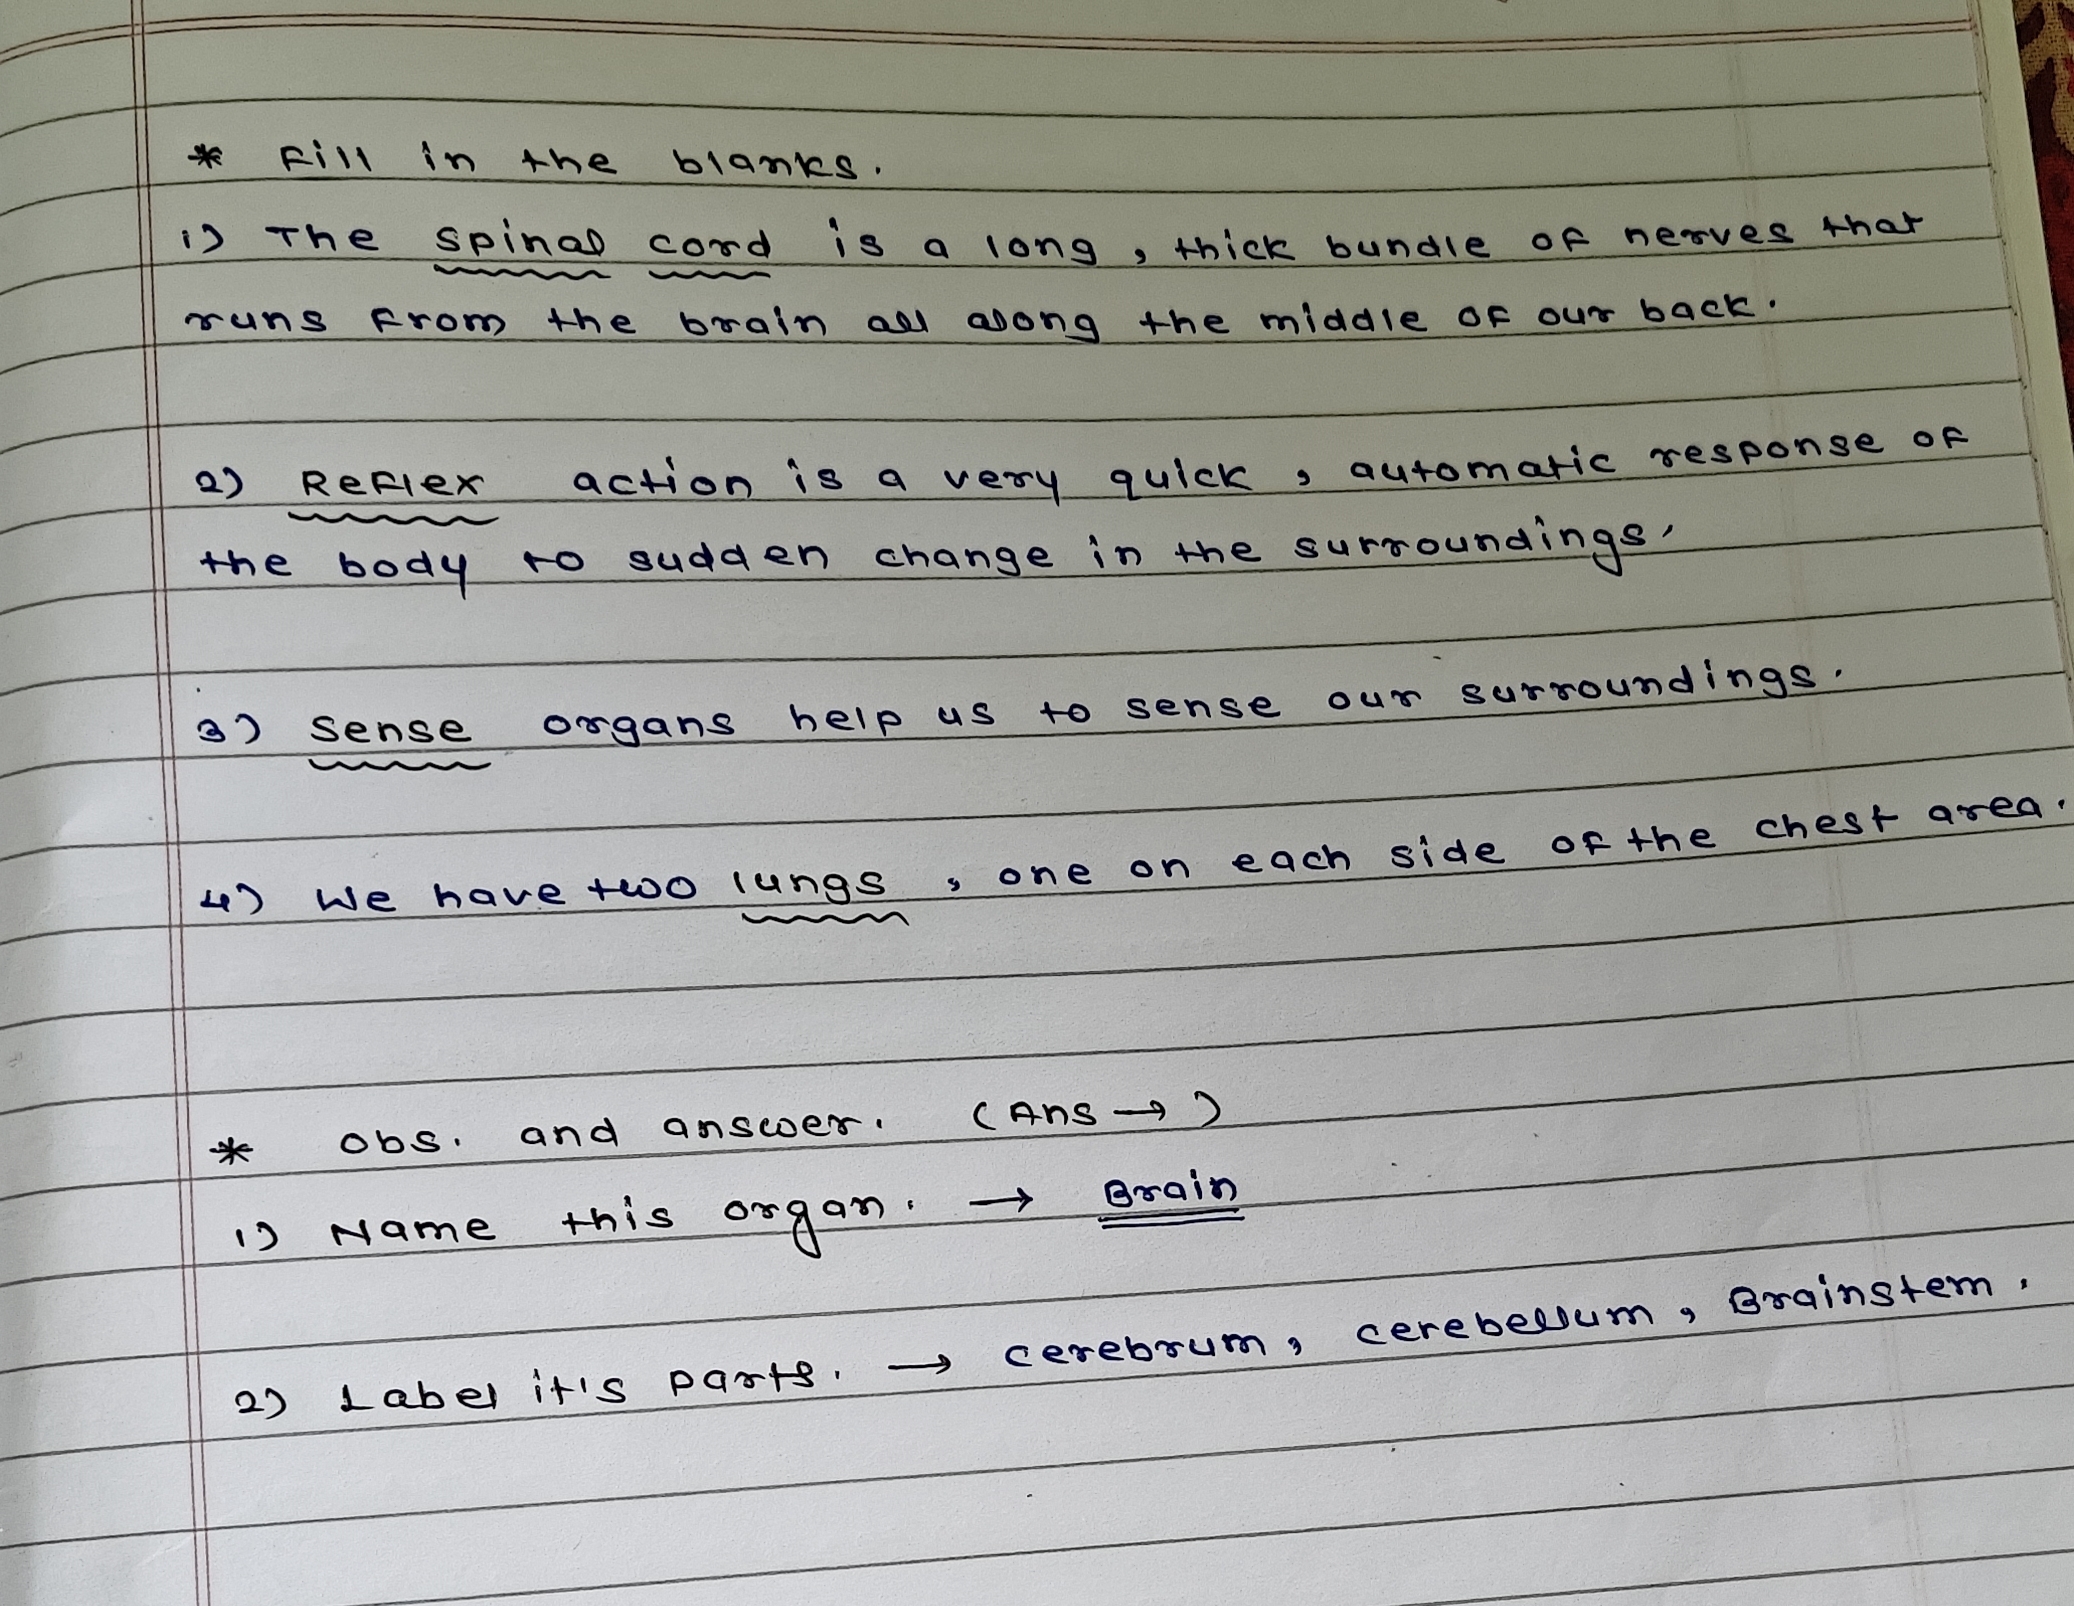 * Fill in the blanks.
1) The spinal cord is a long, thick bundle of nerves that
runs from the brain all along the middle of our back.
2) Reflex action is a very quick, automatic response of
the body to sudden change in the surroundings.
3) Sense organs help us to sense our surroundings.
4) We have two lungs, one on each side of the chest area.
* obs. and answer. (Ans →)
1) Name this organ. → Brain
2) Label it's parts. → cerebrum, cerebellum, Brainstem.